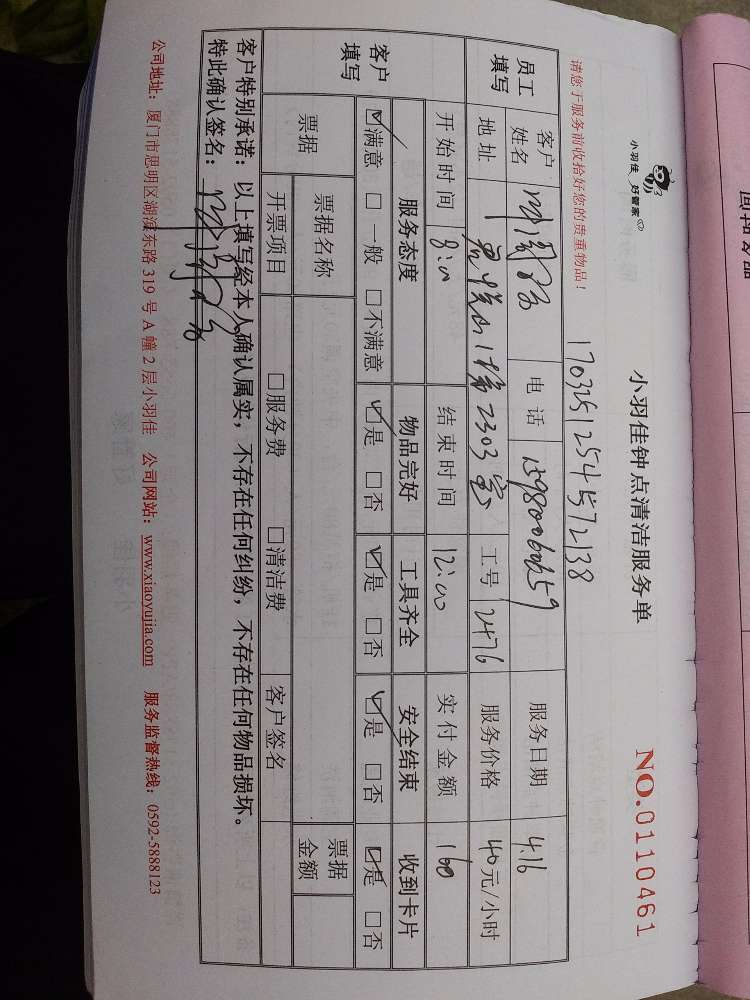 小羽佳 好管家
小羽佳钟点清洁服务单
NO.0110461
请您于服务前收拾好您的贵重物品！
1703251254572138
员工填写
客户姓名
电话 13980060659
服务日期 4.16
地址 1幢2303室
工号 2476
服务价格 40元/小时
开始时间 8:00
结束时间 12:00
实付金额 160
客户填写
服务态度 物品完好 工具齐全 安全结束 收到卡片
☑满意 □一般 □不满意 ☑是 □否 ☑是 □否 ☑是 □否 ☑是 □否
票据 票据名称 票据金额
开票项目 □服务费 □清洁费 客户签名
客户特别承诺：以上填写经本人确认属实，不存在任何纠纷，不存在任何物品损坏。
特此确认签名：
公司地址：厦门市思明区湖滨东路 319 号 A 幢 2 层小羽佳 公司网站：www.xiaoyujia.com 服务监督热线：0592-5888123